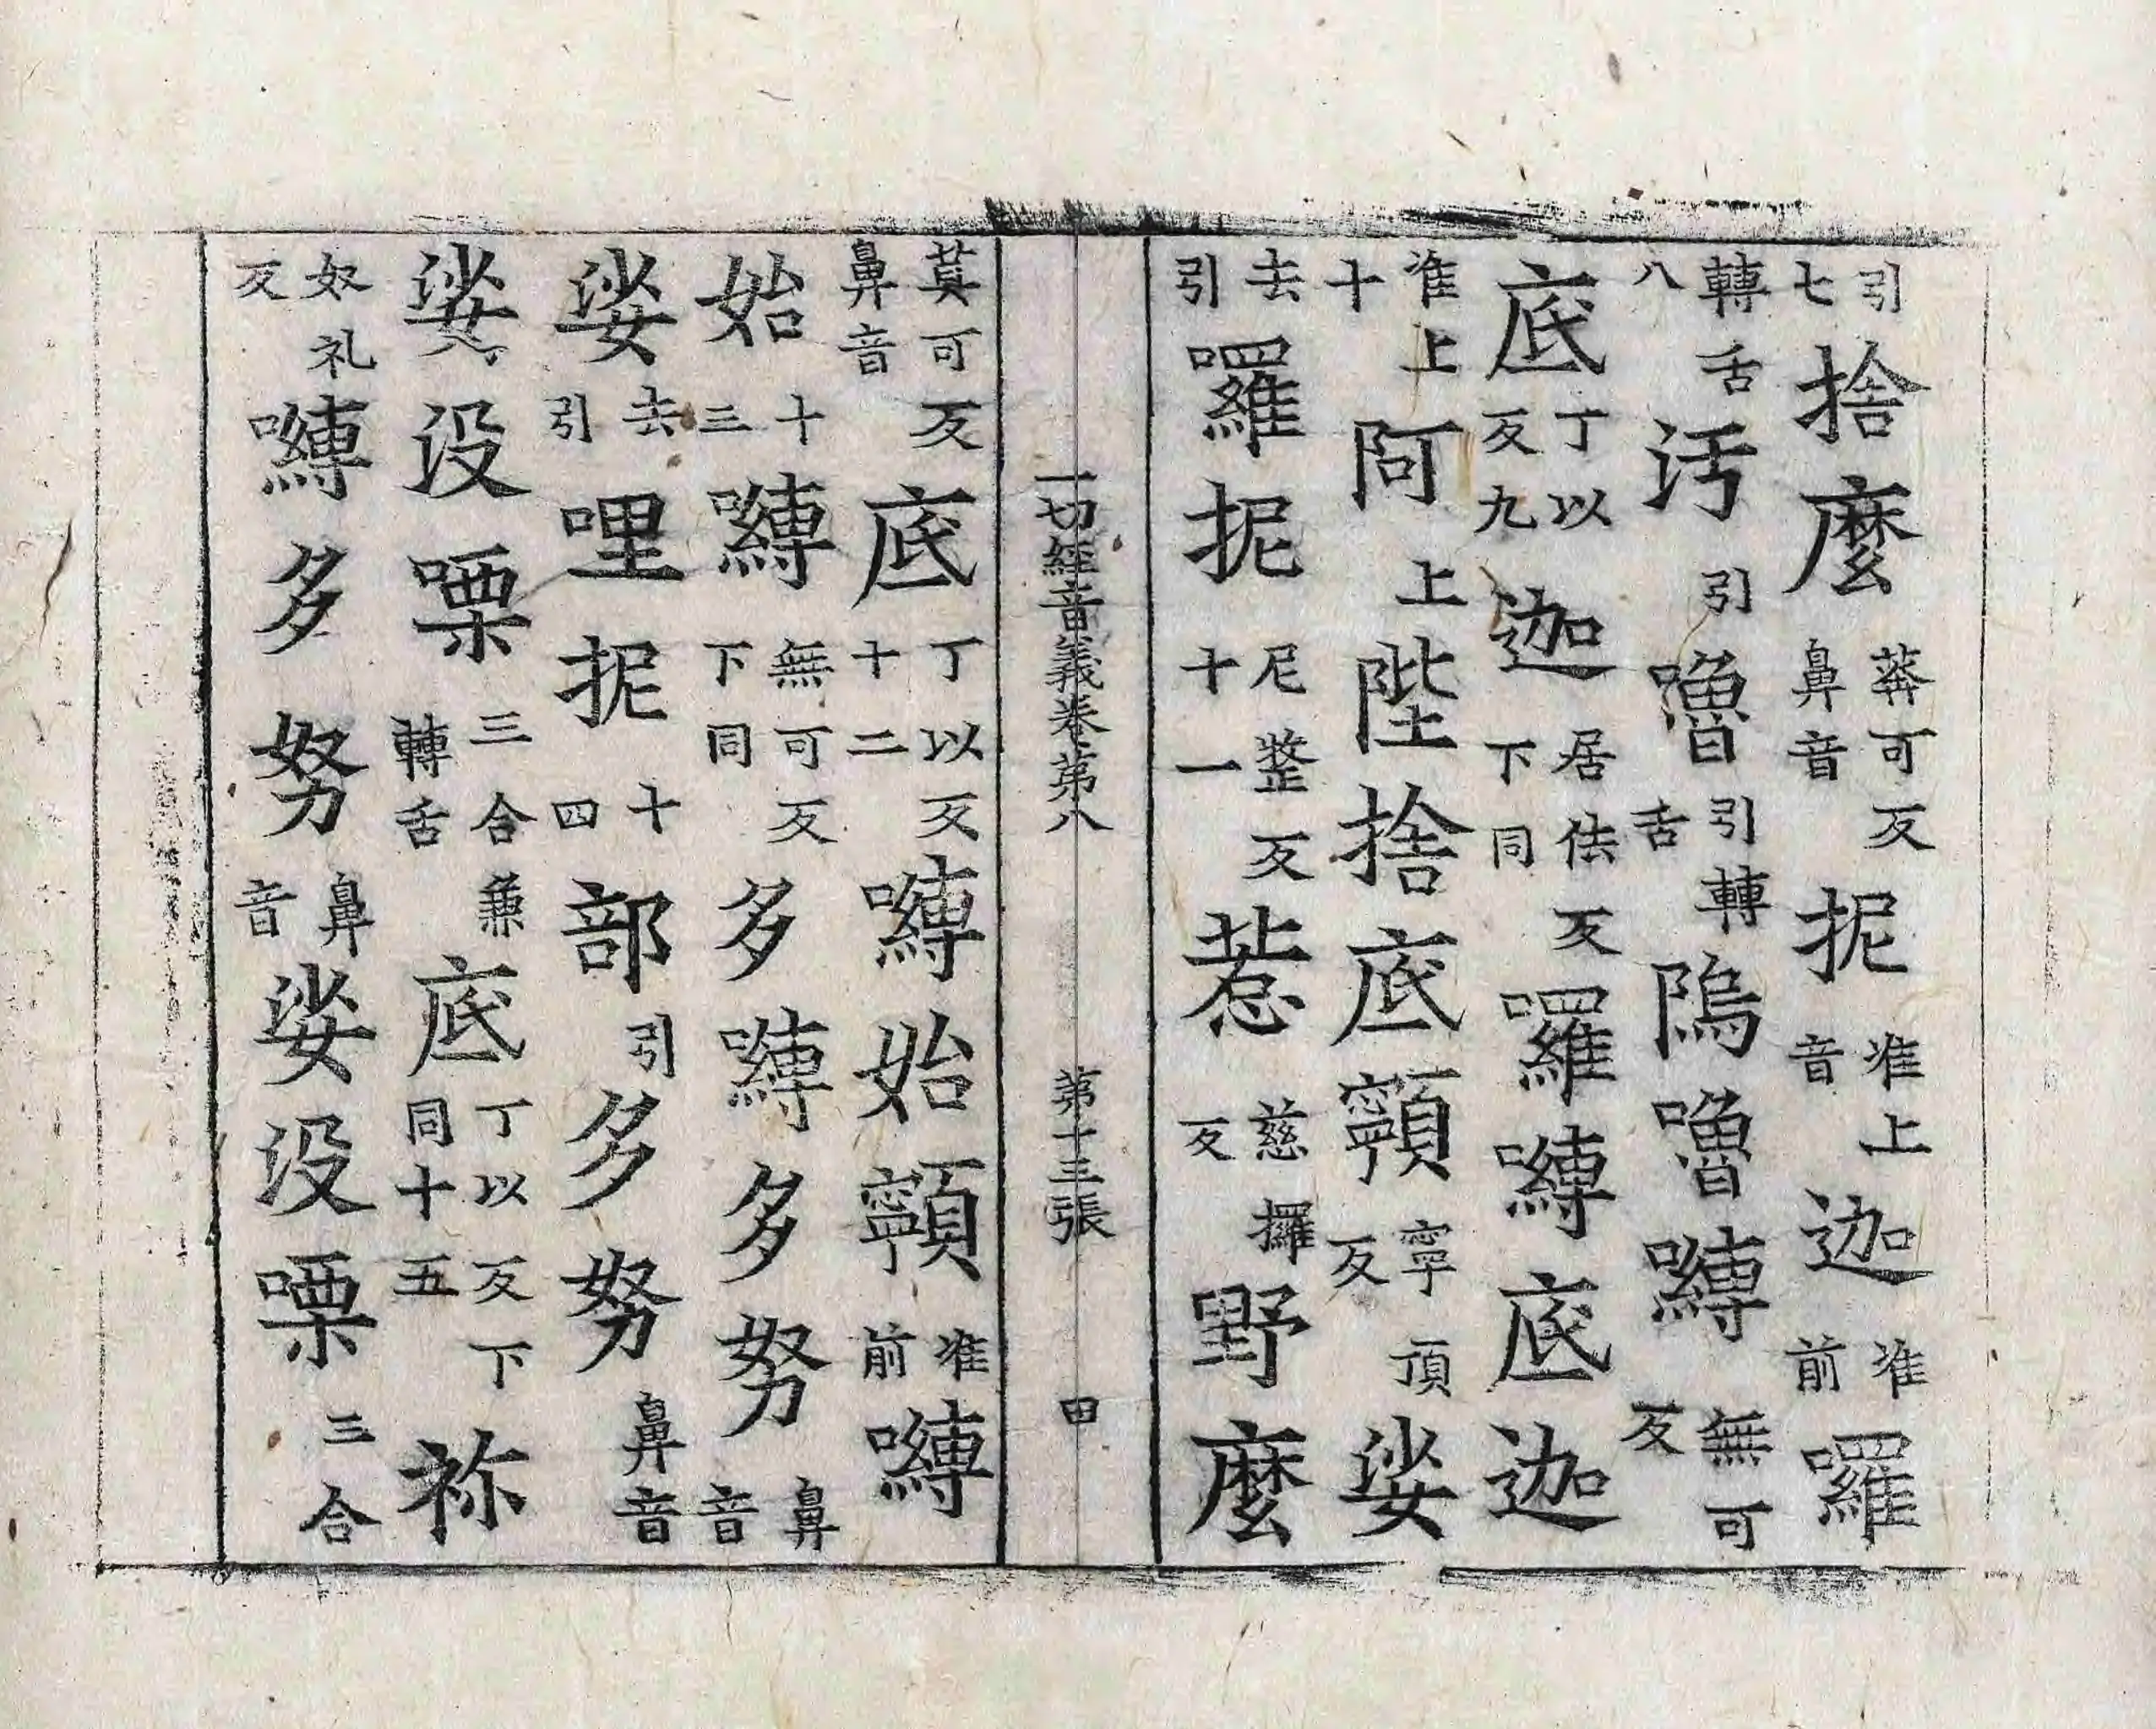 引七捨麼莽可反鼻音抳准上音迦准前囉
轉舌八汚引嚕引轉舌隖嚕嚩無可反
底丁以反九迦居佉反下同囉嚩底迦
准上十阿上陛捨底顊寧頂反娑
去引囉抳尼整反十一惹慈攞反野麼
一切經音義卷第八 第十三張 甲
莫可反鼻音底丁以反十二嚩始顊准前嚩
始十三嚩無可反下同多嚩多努鼻音
娑去引哩抳十四部引多努鼻音
娑没㗚三合兼轉舌底丁以反下同十五祢
奴礼反嚩多努鼻音娑没㗚三合